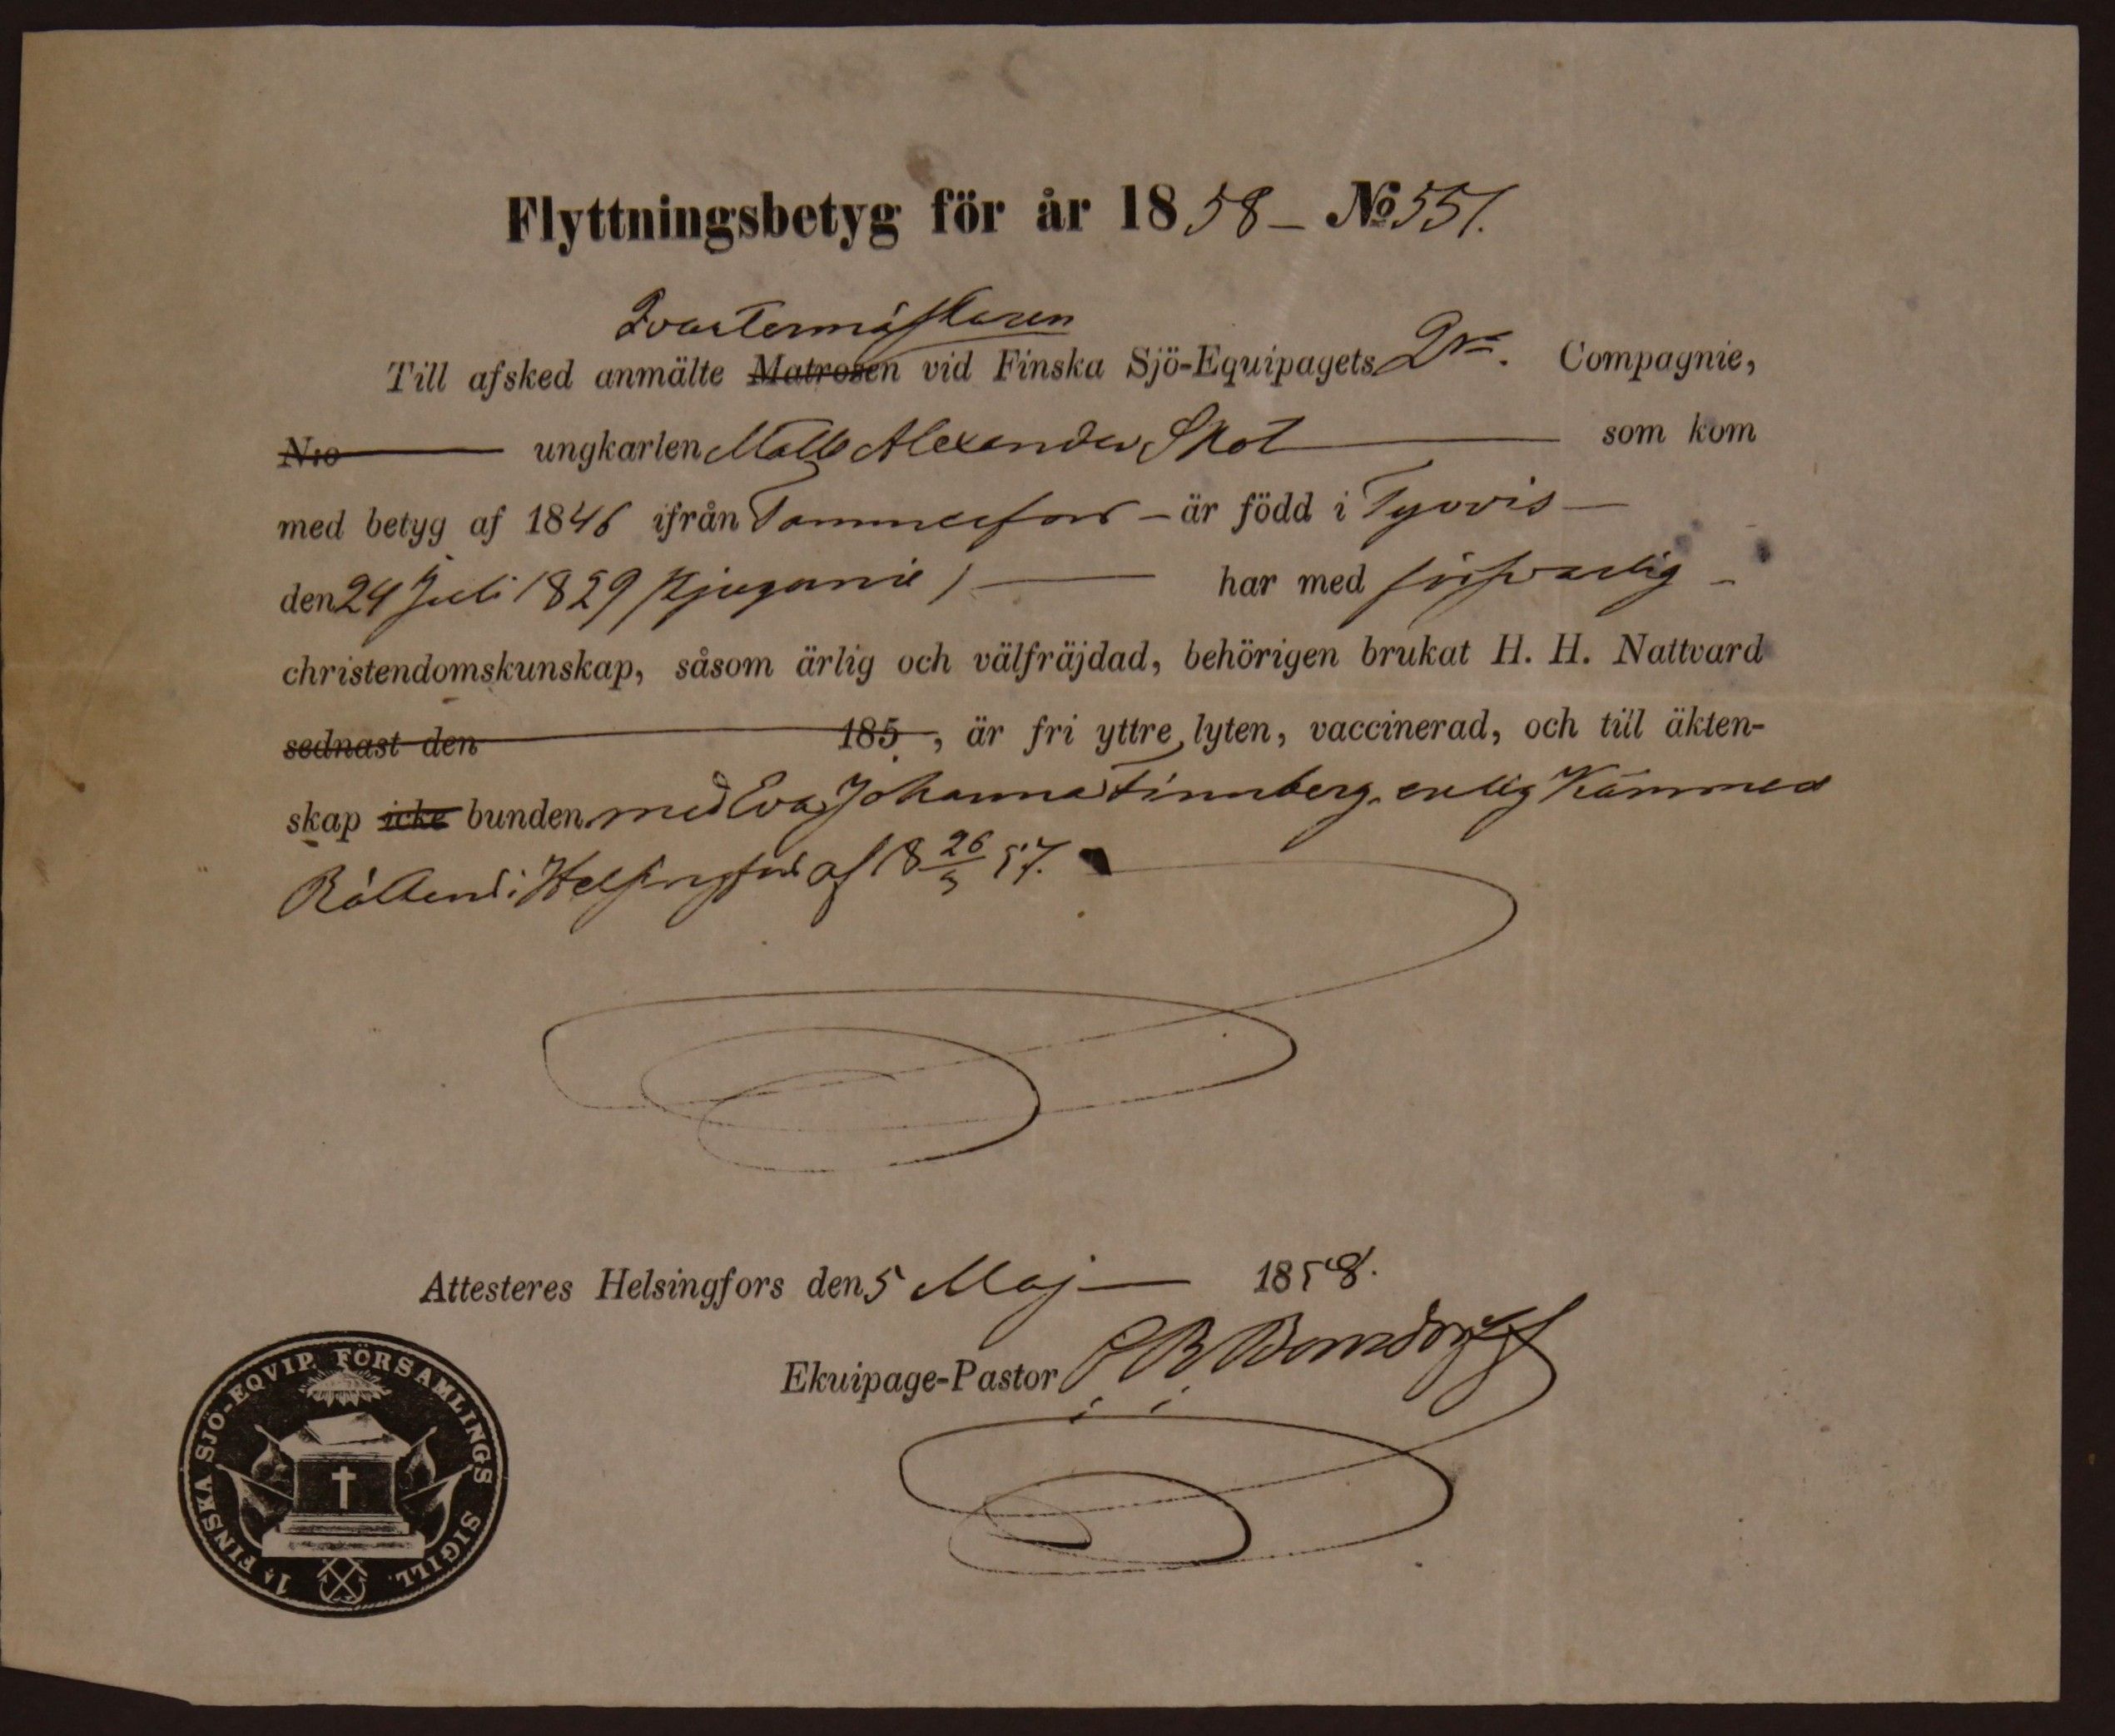 Flyttningsbetyg för år 1858 – No 551.
Qvartermästaren
Till afsked anmälte Matrosen vid Finska Sjö-Equipagets 2ra. Compagnie,
N:o ungkarlen Matts Alexander Skot som kom
med betyg af 1846 ifrån Tammerfors – är född i Tyrvis –
den 24 Juli 1829 (tjugunie) har med försvarlig –
christendomskunskap, såsom ärlig och välfräjdad, behörigen brukat H. H. Nattvard
sednast den 185 , är fri yttre lyten, vaccinerad, och till äkten-
skap icke bunden med Eva Johanna Finnberg, enlig Kämners
Rättens i Helsingfors af 18 26/3 57.
Attesteres Helsingfors den 5 Maj 1858.
Ekuipage-Pastor Bonsdorff
1A FINSKA SJÖ-EQVIP. FÖRSAMLINGS SIGILL.